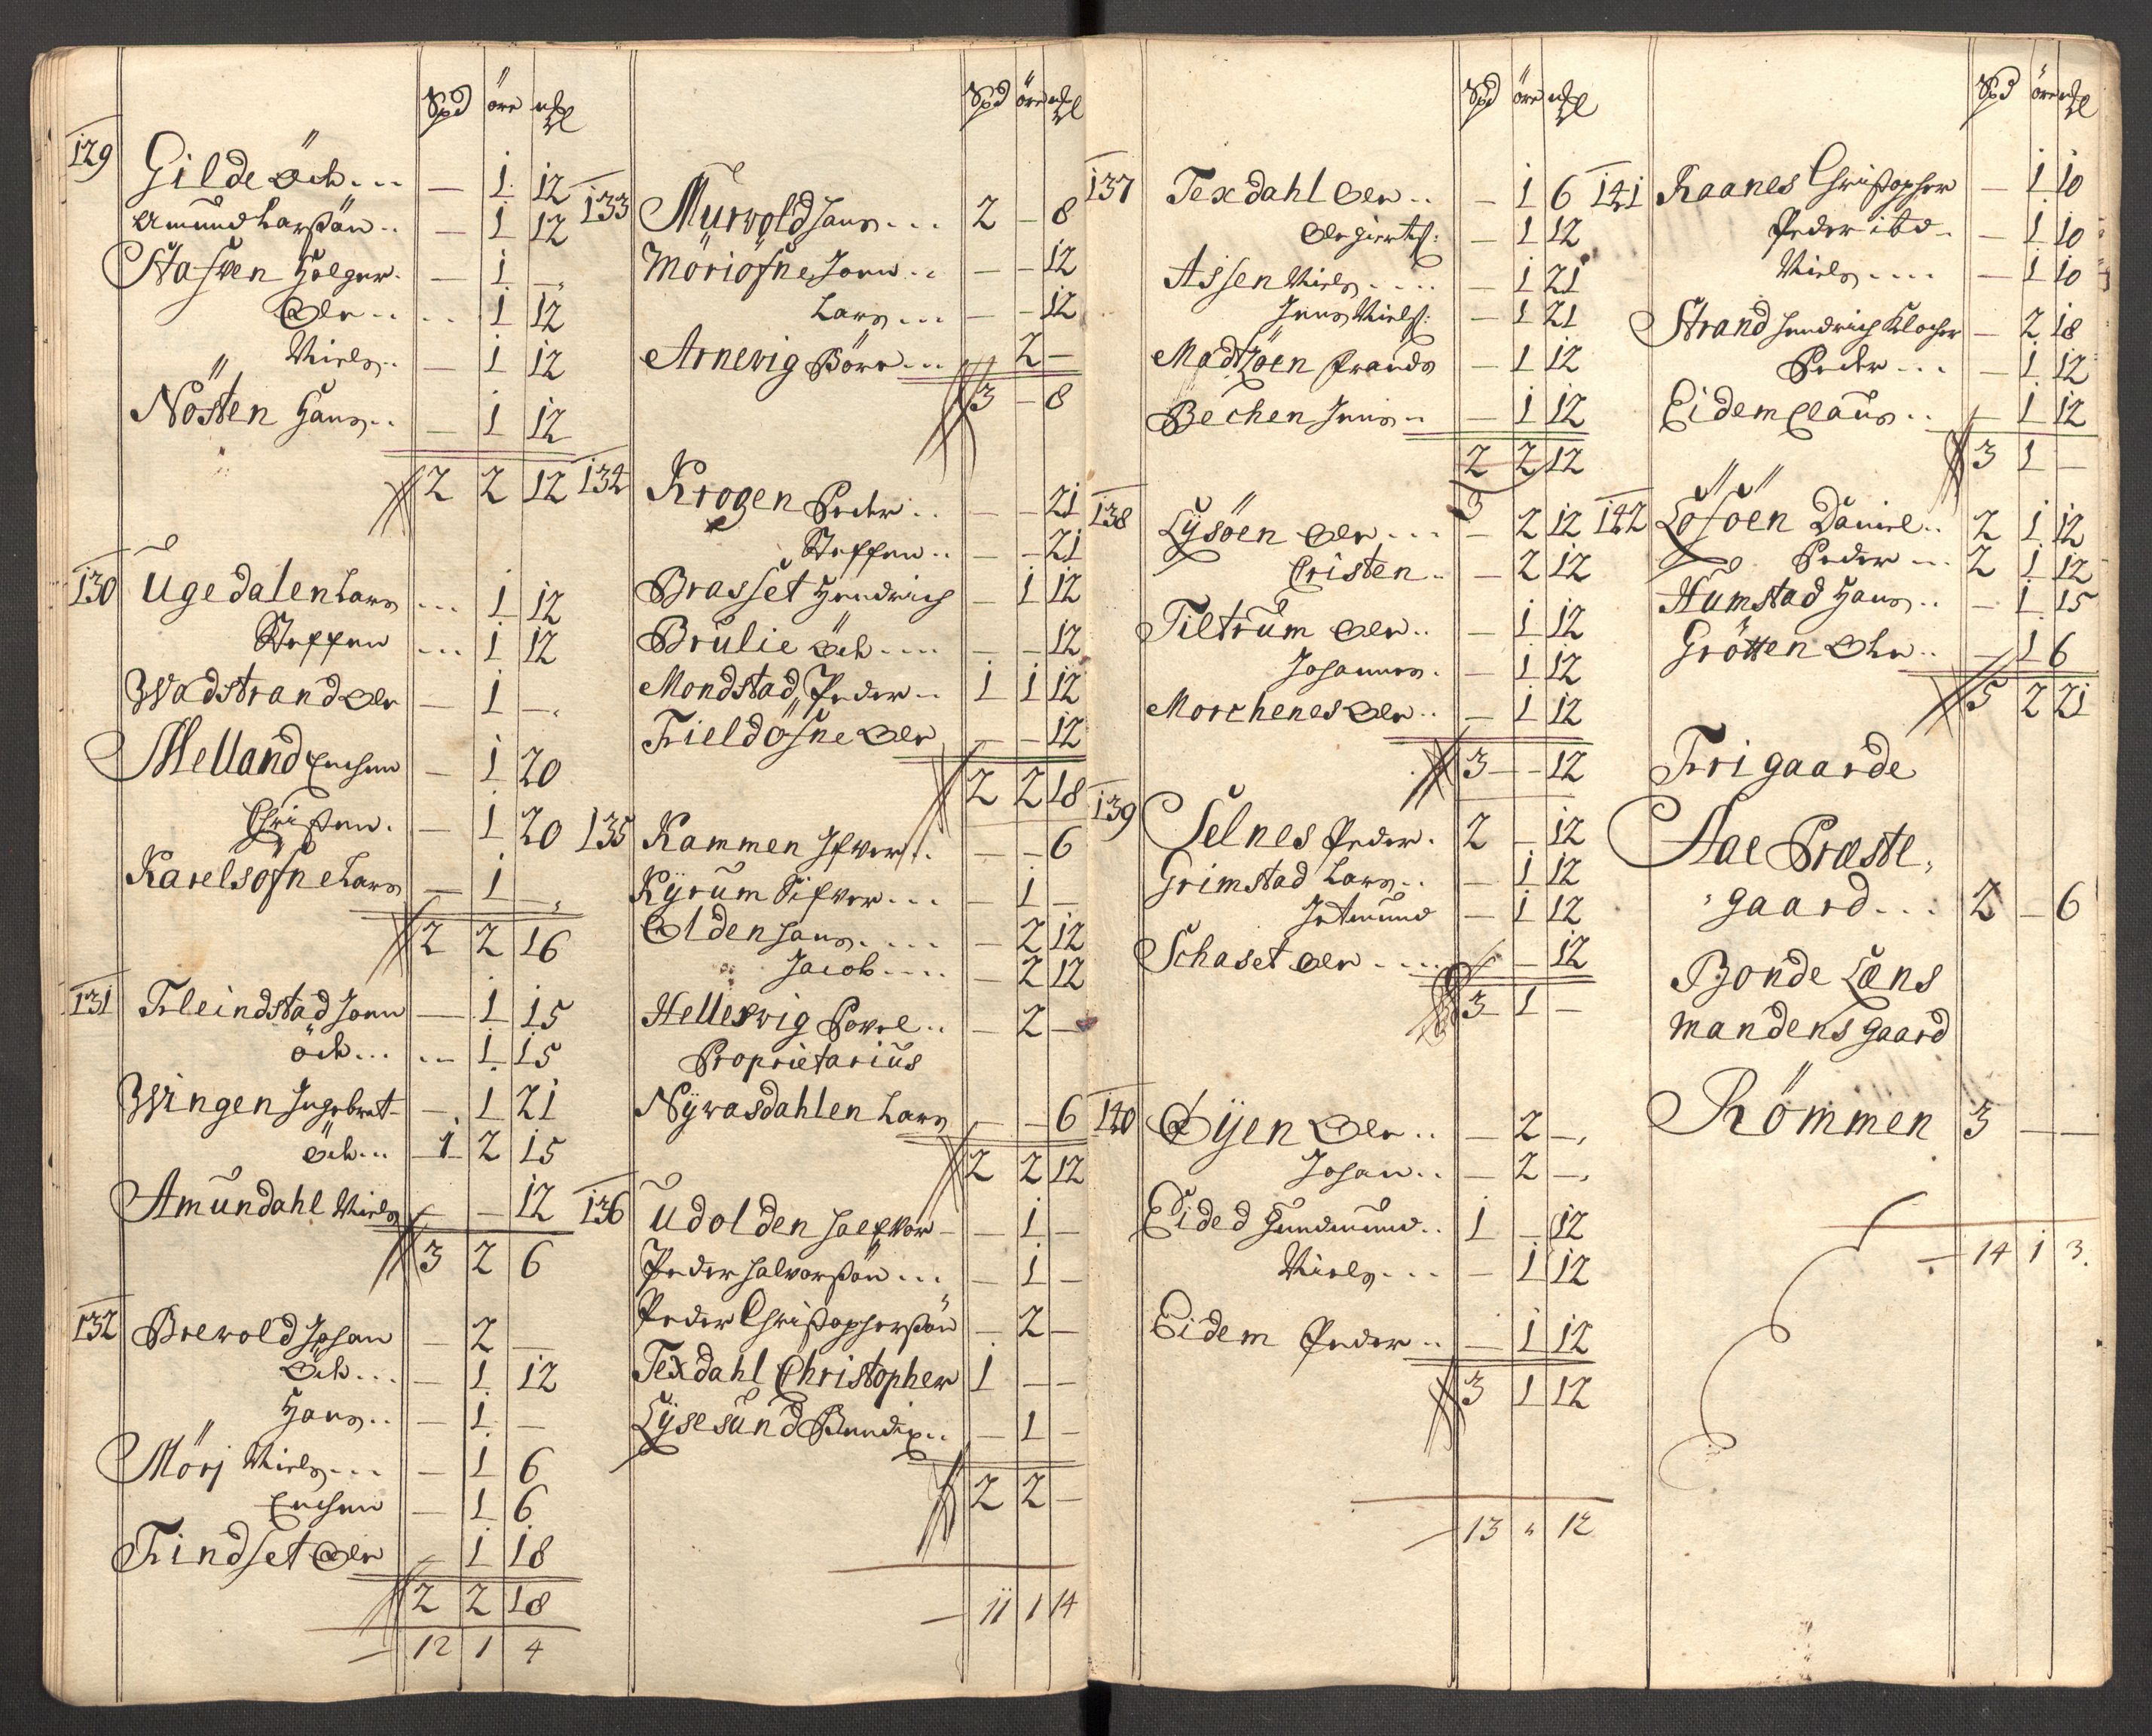 Spd öre mkl
129 Gilde Och... — 1 12
Amund Larßön.. — 1 12
Stasven Holger. — 1 —
Ole.. .. 1 12
Niels.. — 1 12
Nösten Hans.. — 1 12
2 2 12
130 Ugedalen Lars ... 1 12
Steffen ... 1 12
Wadstrand Ole — 1 —
Melland Enchen — 1 20
Christen. — 1 20
Karelsöfne Lars — 1 —
2 2 16
131 Fleindstad Jonn — 1 15
Och... .. 1 15
Wingen Ingebret — 1 21
Och... 1 2 15
Amundahl Niels — — 12
3 2 6
132 Brewold Johan — 2 —
Och... — 1 12
Hans.. — 1 —
Mörj Niels... — 1 6
Enchen — 1 6
Findset Ole — 1 18
2 2 18
12 1 4
Spd öre mkl
133 Murvold Hans... 2 — 8
Möriöfne Jonn.. — — 12
Lars... — — 12
Arnevig Börre... 2 —
3 — 8
134 Krogen Peder.. — — 21
Steffen.. — — 21
Brasset Hendrich — 1 12
Brülie Och.... — — 12
Mondstad Peder.. 1 1 12
Fieldösne Ole — — 12
2 2 18
135 Kammen Ifver.. — — 6
Kÿrum Sifver... — 1 —
Olden Hans.... — 2 12
Jacob.... — 2 12
Hellesvig Povel.. — 2 —
Proprietarius
Nÿwasdahlen Lars — — 6
2 2 12
136 Udolden Halfvor — — 1 —
Peder Halvorßön... — 1 —
Peder Christophersön — 2 —
Texdahl Christopher 1 — —
Lÿsesund Bendix.. — 1 —
2 2 —
11 1 14
Spd öre mkl
137 Texdahl Ole.. — 1 6
Ole Giertß: — 1 12
Assen Niels.... — 1 21
Jens Nielß: — 1 21
Madtzöen Frands — 1 12
Bechen Jens.. — 1 12
2 2 12
3
138 Lÿsöen Ole... — 2 12
Cristen.. — 2 12
Tiltrum Ole.. — 1 12
Johannes. — 1 12
Morchenes Ole.. — 1 12
3 — 12
139 Selnes Peder. 2 — 12
Grimstad Lars.. — 1 12
Jetmund — 1 12
Schaset Ole.... — — 12
3 1 —
140 Öÿen Ole.. — 2 —
Johan.. — 2 —
Eided Gundmund.. 1 — 12
Niels... — 1 12
Eidem Peder.. — 1 12
3 1 12
13 " 12
Spd öre mkl
141 Raanes Christopher — 1 10
Peder ibd. — 1 10
Niels.... — 1 10
Strand Hendrich Klocher — 2 18
Peder... — 1 12
Eidem Claus.. — 1 12
3 1 —
142 Lösöen Daniel.. 2 1 12
Peder... 2 1 12
Humstad Hans.. — 1 15
Grötten Ole.. — 1 6
5 2 21
Frigaarde
Aae Præste,
gaard... 2 — 6
Bonde Læns
mandens gaard
Römmen 3 — —
14 1 3.